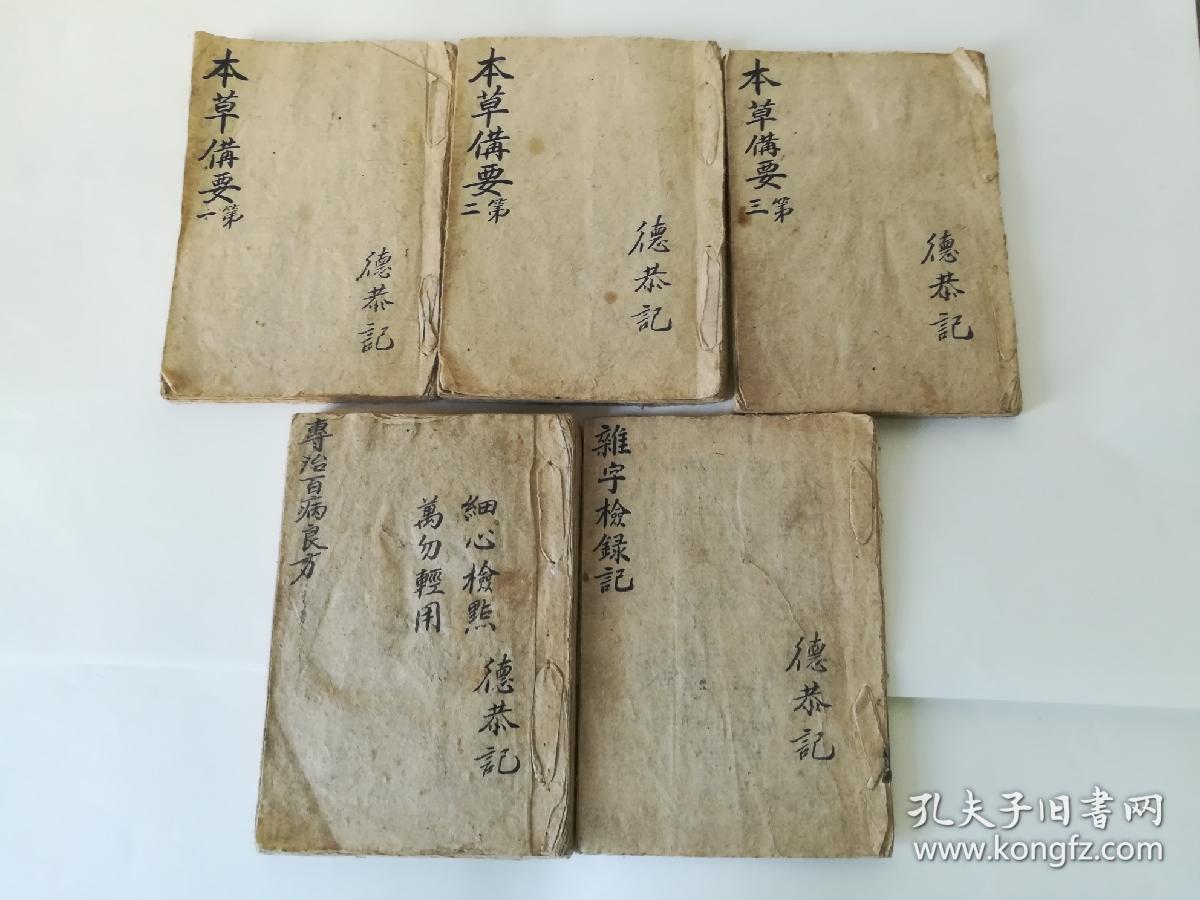 本草備要
第一
德恭記
本草備要
第二
德恭記
本草備要
第三
德恭記
專治百病良方
細心檢點
萬勿輕用
德恭記
雜字檢録記
德恭記
孔夫子旧书网
www.kongfz.com